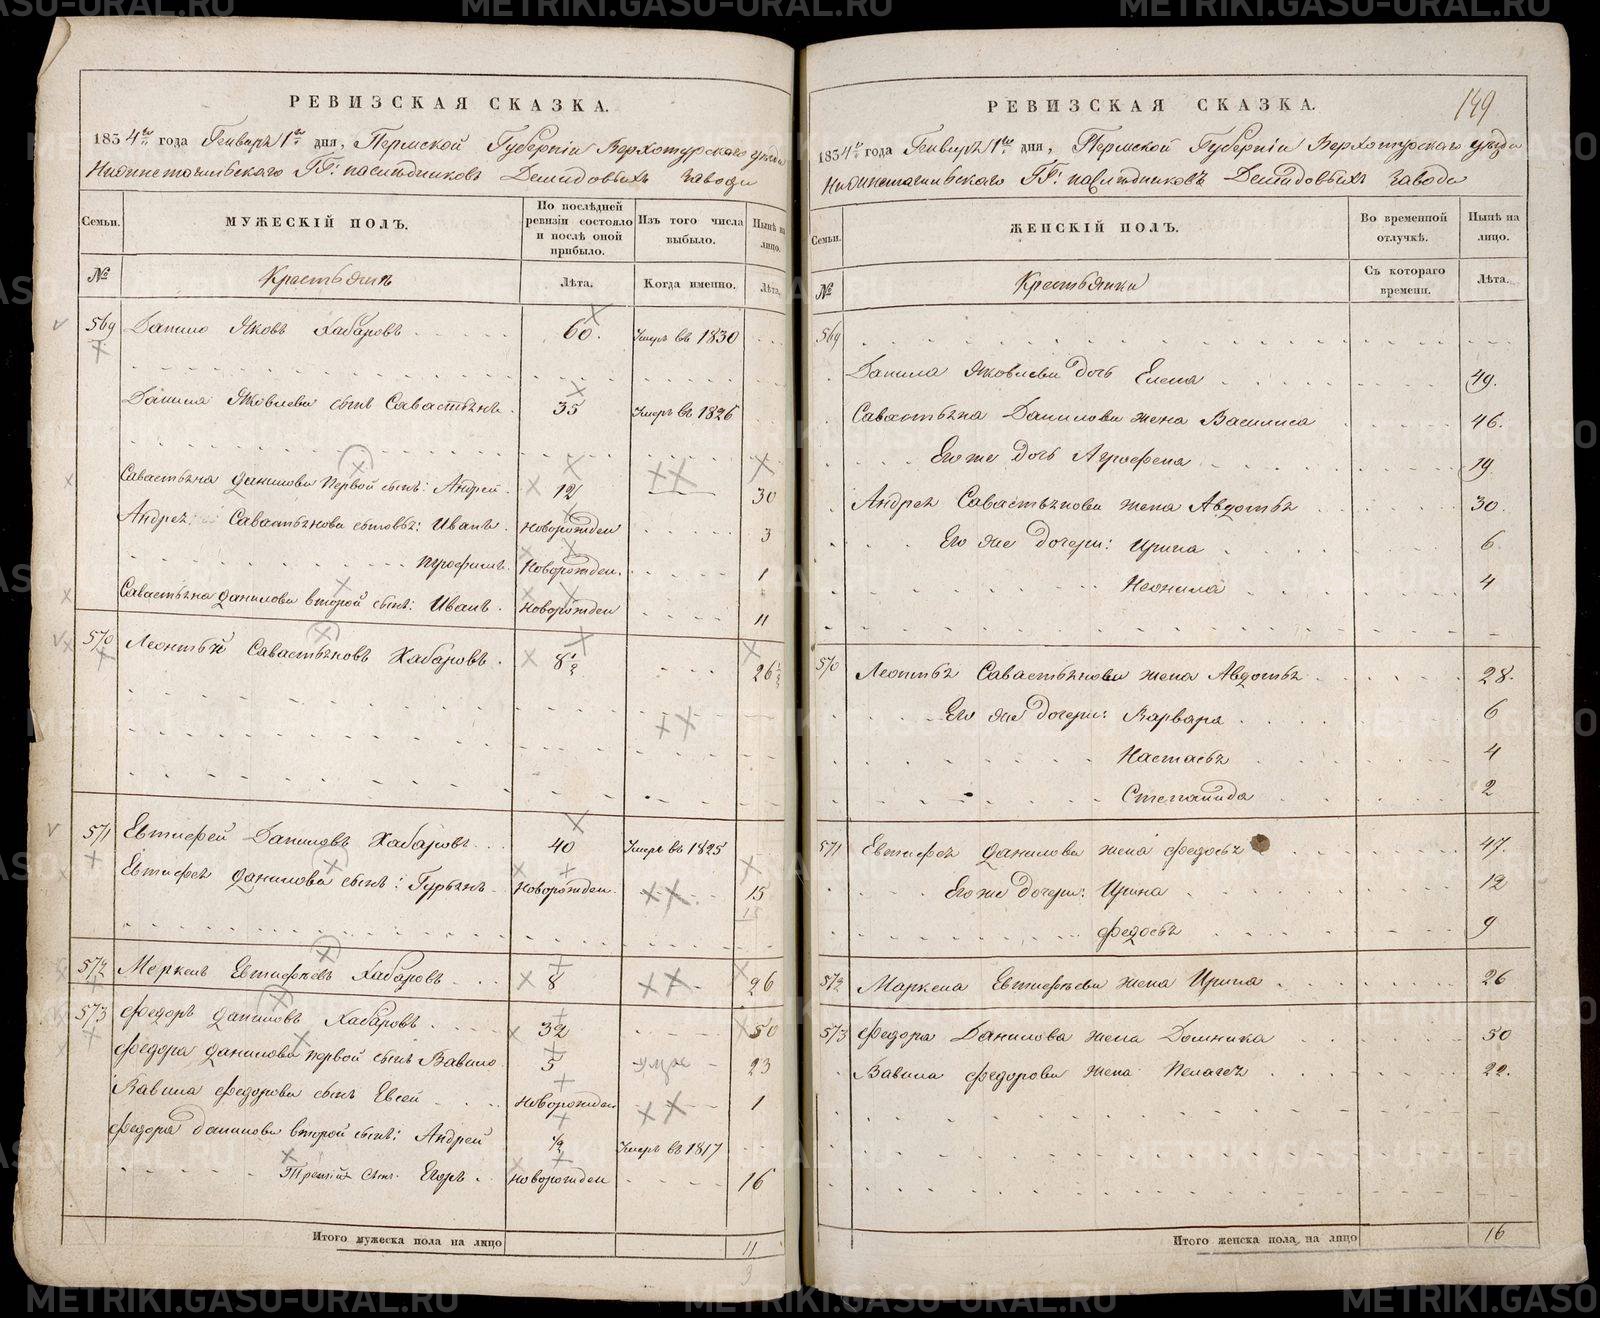 РЕВИЗСКАЯ СКАЗКА.
1834го года Генваря 1го дня, Пермской Губерніи Верхотурскаго уезда
Нижнетагильскаго ГГ: наследниковъ Демидовыхъ завода
Семьи.
МУЖЕСКІЙ ПОЛЪ.
По послѣдней ревизіи состояло и послѣ оной прибыло.
Изъ того числа выбыло.
Нынѣ на лицо.
№
Крестьяне
Лѣта.
Когда именно.
Лѣта.
569 Данило Яковъ Хабаровъ 60. Умеръ въ 1830
Данила Яковлева сынъ Савастьянъ 35 Умеръ въ 1826
Савастьяна Данилова первой сынъ: Андрей 12 30
Андрея Савастьянова сыновья: Иванъ Новорожден 3
Трофимъ Новорожден. 1
Савастьяна Данилова второй сынъ: Иванъ Новорожден 11
570 Леонтьй Савастьяновъ Хабаровъ. 8½ 26½
571 Евтифей Даниловъ Хабаровъ 40 Умеръ въ 1825
Евтифея Данилова сынъ: Гурьянъ Новорожден. 15
15
572 Меркелъ Евтифеевъ Хабаровъ 8 26
573 Федоръ Даниловъ Хабаровъ. 32 50
Федора Данилова первой сынъ Вавило 5 23
Вавила Федорова сынъ Евсей Новорожден 1
Федора Данилова второй сынъ: Андрей ½ Умеръ въ 1817
Третій сынъ Егоръ Новорожден 16
Итого мужеска пола на лицо 11
3
РЕВИЗСКАЯ СКАЗКА.
149
1834го года Генваря 1го дня, Пермской Губерніи Верхотурскаго уезда
Нижнетагильскаго ГГ: наследниковъ Демидовыхъ завода
Семьи.
ЖЕНСКІЙ ПОЛЪ.
Во временной отлучкѣ.
Нынѣ на лицо.
№
Крестьянки
Съ котораго времени.
Лѣта.
569
Данила Яковлева дочь Елена 49.
Савастьяна Данилова жена Василиса 46.
Его же дочь Агрофена 19
Андрея Савастьянова жена Авдотья 30.
Его же дочери: Ирина 6
Неонила 4
570 Леонтья Савастьянова жена Авдотья 28.
Его же дочери: Варвара 6
Настасья 4
Степанида 2
571 Евтифея Данилова жена Федосья 47.
Его же дочери: Ирина 12
Федосья 9
572 Маркела Евтифеева жена Ирина 26
573 Федора Данилова жена Домника 50
Вавила Федорова жена Пелагея 22.
Итого женска пола на лицо 16